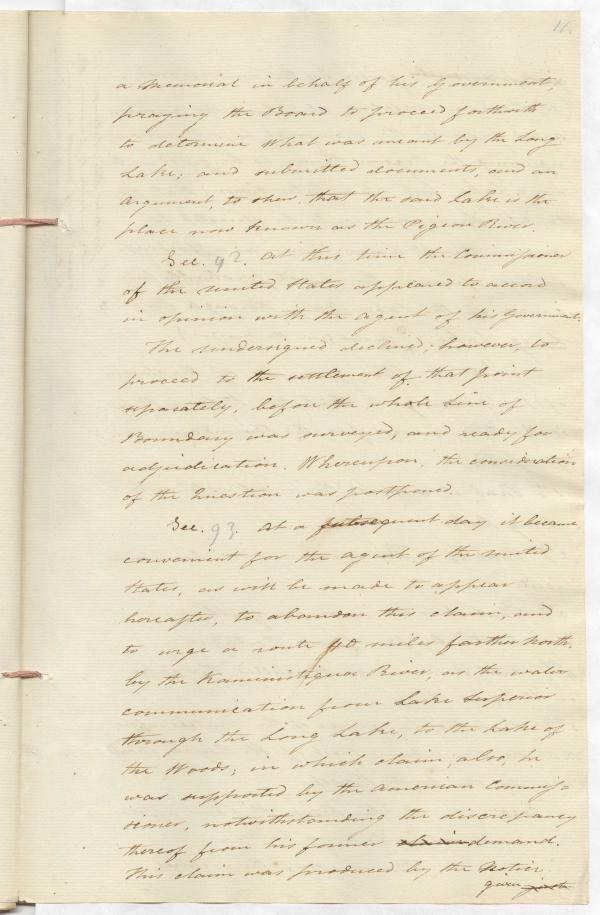 11.
a Memorial in behalf of his Government,
praying the Board to proceed forthwith
to determine What was meant by the Long
Lake; and submitted documents, and an
Argument, to shew, that the said Lake is the
place now known as the Pigeon River.
Sec. 92. At this time the Commissioner
of the United States appeared to accord
in opinion with the Agent of his Government.
The undersigned declined, however, to
proceed to the settlement of that point
separately, before the whole Line of
Boundary was surveyed, and ready for
adjudication. Whereupon, the consideration
of the Question was postponed.
Sec. 93. At a subsequent day it became
convenient for the Agent of the United
States, as will be made to appear
hereafter, to abandon this claim, and
to urge a route 40 miles farther North,
by the Kaministiguia River, as the water
communication from Lake Superior
through the Long Lake, to the Lake of
the Woods; in which claim, also, he
was supported by the American Commis=
sioner, notwithstanding the discrepancy
thereof from his former demand.
This claim was produced by the Notice
given